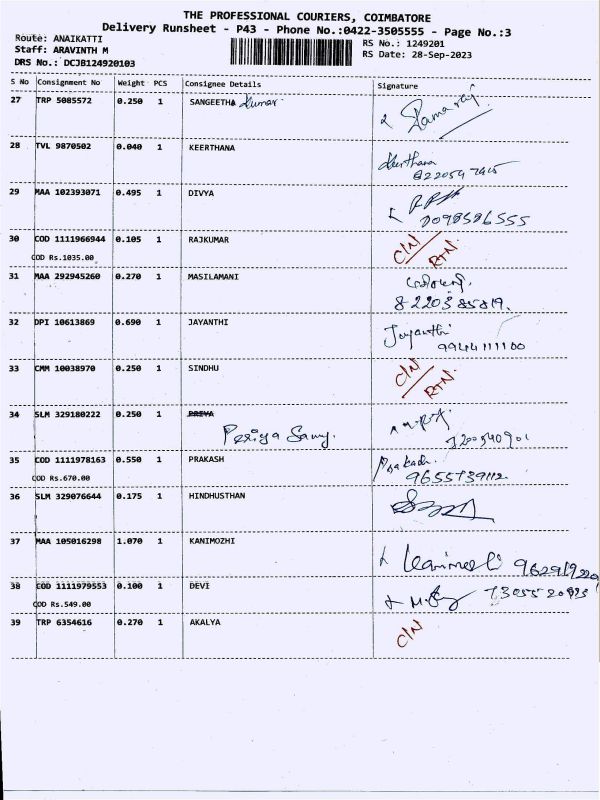 THE PROFESSIONAL COURIERS, COIMBATORE
Delivery Runsheet - P43 - Phone No.:0422-3505555 - Page No.:3
Route: ANAIKATTI
Staff: ARAVINTH M
DRS No.: DCJB124920103
RS No.: 1249201
RS Date: 28-Sep-2023
S No Consignment No Weight PCS Consignee Details Signature
27 TRP 5085572 0.250 1 SANGEETHA Kumar
28 TVL 9870502 0.040 1 KEERTHANA Keerthana
29 MAA 102393071 0.495 1 DIVYA
30 COD 1111966944 0.105 1 RAJKUMAR C/N RTN
COD Rs.1035.00
31 MAA 292945260 0.270 1 MASILAMANI
8220385819.
32 DPI 10613869 0.690 1 JAYANTHI Jayanthi
9944111100
33 CMM 10038970 0.250 1 SINDHU C/N RTN.
34 SLM 329180222 0.250 1 PREYA
Periya Samy.
35 COD 1111978163 0.550 1 PRAKASH Prakash.
COD Rs.670.00 9655739112
36 SLM 329076644 0.175 1 HINDHUSTHAN
37 MAA 105016298 1.070 1 KANIMOZHI
38 COD 1111979553 0.100 1 DEVI
COD Rs.549.00
39 TRP 6354616 0.270 1 AKALYA C/N